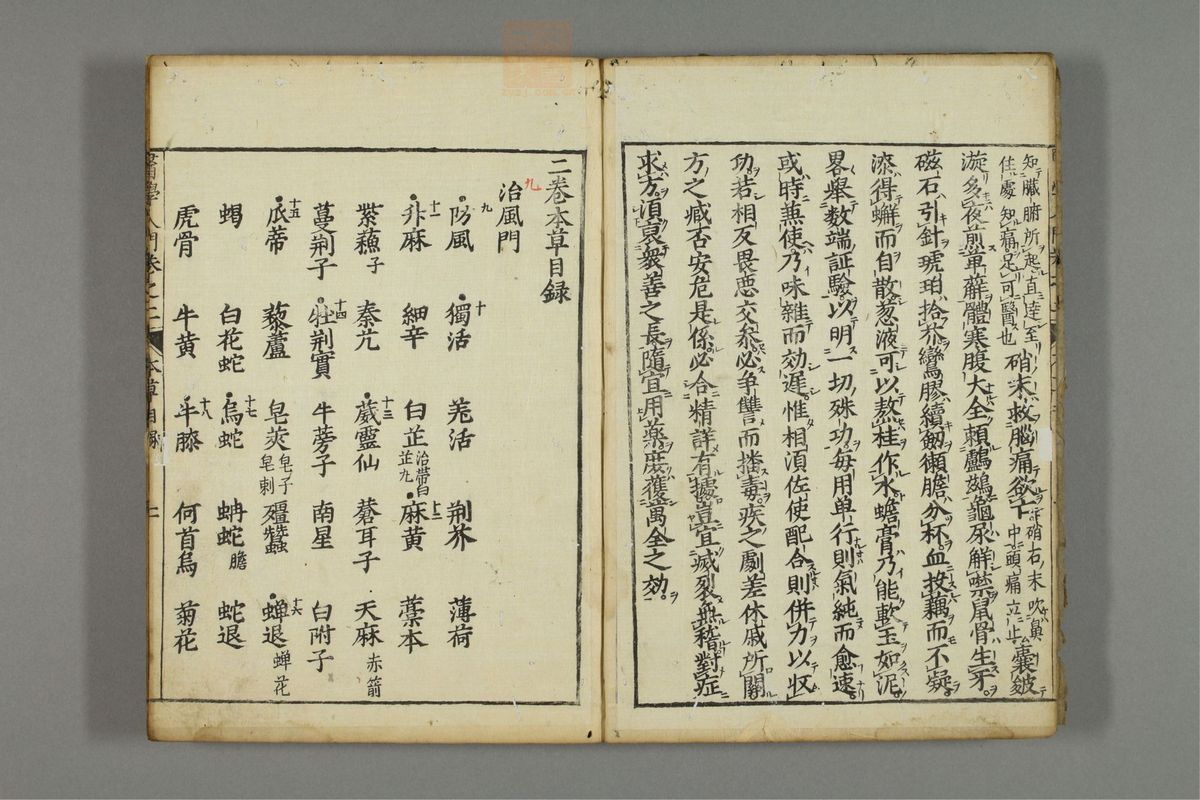 知臟腑所起直達至
佳處知痛足可醫也
硝末救腦痛欲亡
硝石末吹鼻
中頭痛立止
囊皺
漩多夜煎萆薢體寒腹大全賴鸕鷀龜尿解噤鼠骨生牙
磁石引針琥珀拾芥鸞膠續劒獺膽分杯血投藕而不凝
漆得蠏而自散葱液可以熬桂作水蟾膏乃能軟玉如泥
畧舉数端証驗以明一切殊功每用单行則氣純而愈速
或時兼使乃味雜而効遲惟相須佐使配合則併力以収
功若相反畏惡交叅必争讐而播毒疾之劇差休戚所關
方之臧否安危是係必合精詳有據豈宜減裂無稽對症
求方須裒衆善之長隨宜用藥庶獲萬全之効
二卷本草目録
治風門
九
防風 獨活 羗活 荆芥 薄荷
九 十
升麻 細辛 白芷 治帶白芷九 麻黄 藁本
十一 十二
紫蘓子 秦艽 葳靈仙 蒼耳子 天麻 赤箭
十三
蔓荆子 牡荆實 牛蒡子 南星 白附子
十四
瓜蒂 藜蘆 皂莢 皂子 皂刺 殭蠶 蟬退 蟬花
十五 十六
蝎 白花蛇 烏蛇 蚺蛇膽 蛇退
十七
虎骨 牛黄 牛膝 何首烏 菊花
十八
醫學入門卷之二 本草目録